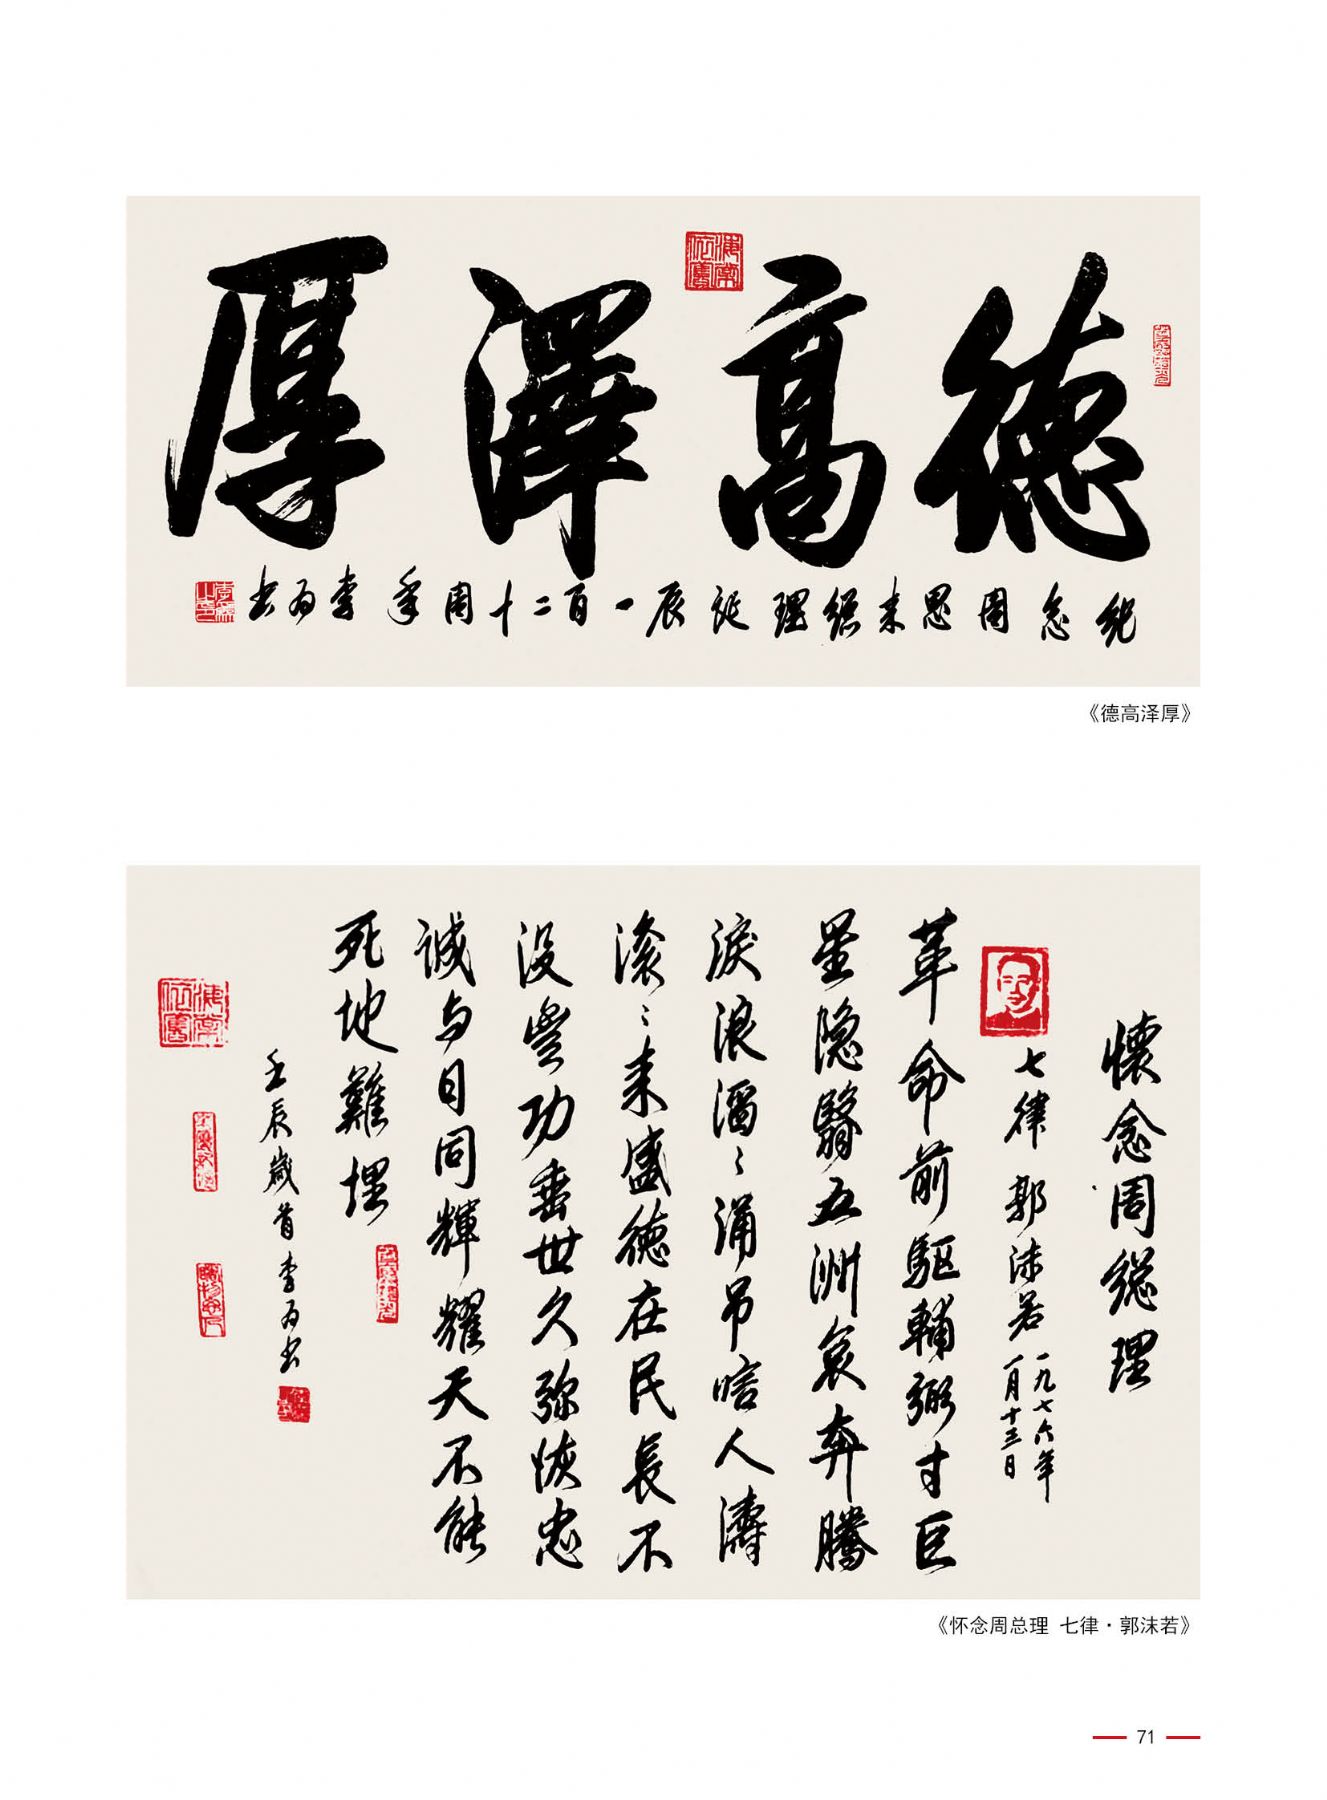 德高澤厚
纪念周恩来總理诞辰一百二十周年 李为书
《德高泽厚》
懷念周總理
七律 郭沫若 一九七六年
一月十三日
革命前驅輔弼才巨
星隐翳五洲哀奔騰
淚浪滔〻涌吊唁人濤
滚〻来盛德在民長不
没豐功垂世久弥恢忠
诚与日同輝耀天不能
死地難埋
壬辰歲首李为书
《怀念周总理 七律·郭沫若》
71